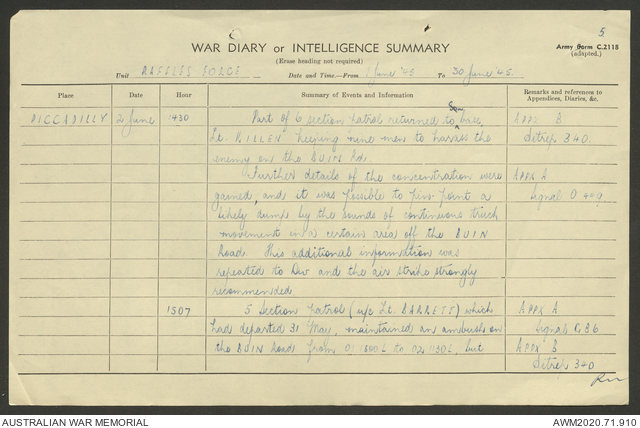 5
WAR DIARY or INTELLIGENCE SUMMARY
Army Form C.2118
(Erase heading not required)
(adapted.)
Unit RAFFLES FORCE Date and Time.—From 1 June '45 To 30 June '45.
Place Date Hour Summary of Events and Information Remarks and references to
Appendices, Diaries, &c.
PICCADILLY 2 June 1430 Part of 6 section patrol returned to Sqn base APPX B
Lt. KILLEN keeping nine men to harass the Sitrep 340.
enemy on the BUIN Rd.
Further details of the concentration were APPX A
gained, and it was possible to pin point a Signal O 409
likely dump by the sounds of continuous truck
movement in a certain area off the BUIN
Road. This additional information was
repeated to Div and the air strike strongly
recommended.
1507 5 Section patrol (u/c Lt. BARRETT) which APPX A
had departed 31 May, maintained an ambush on Signal G86
the BUIN Road from 01 1800L to 02 1130L, but APPX B
Sitrep 340
AUSTRALIAN WAR MEMORIAL AWM2020.71.910